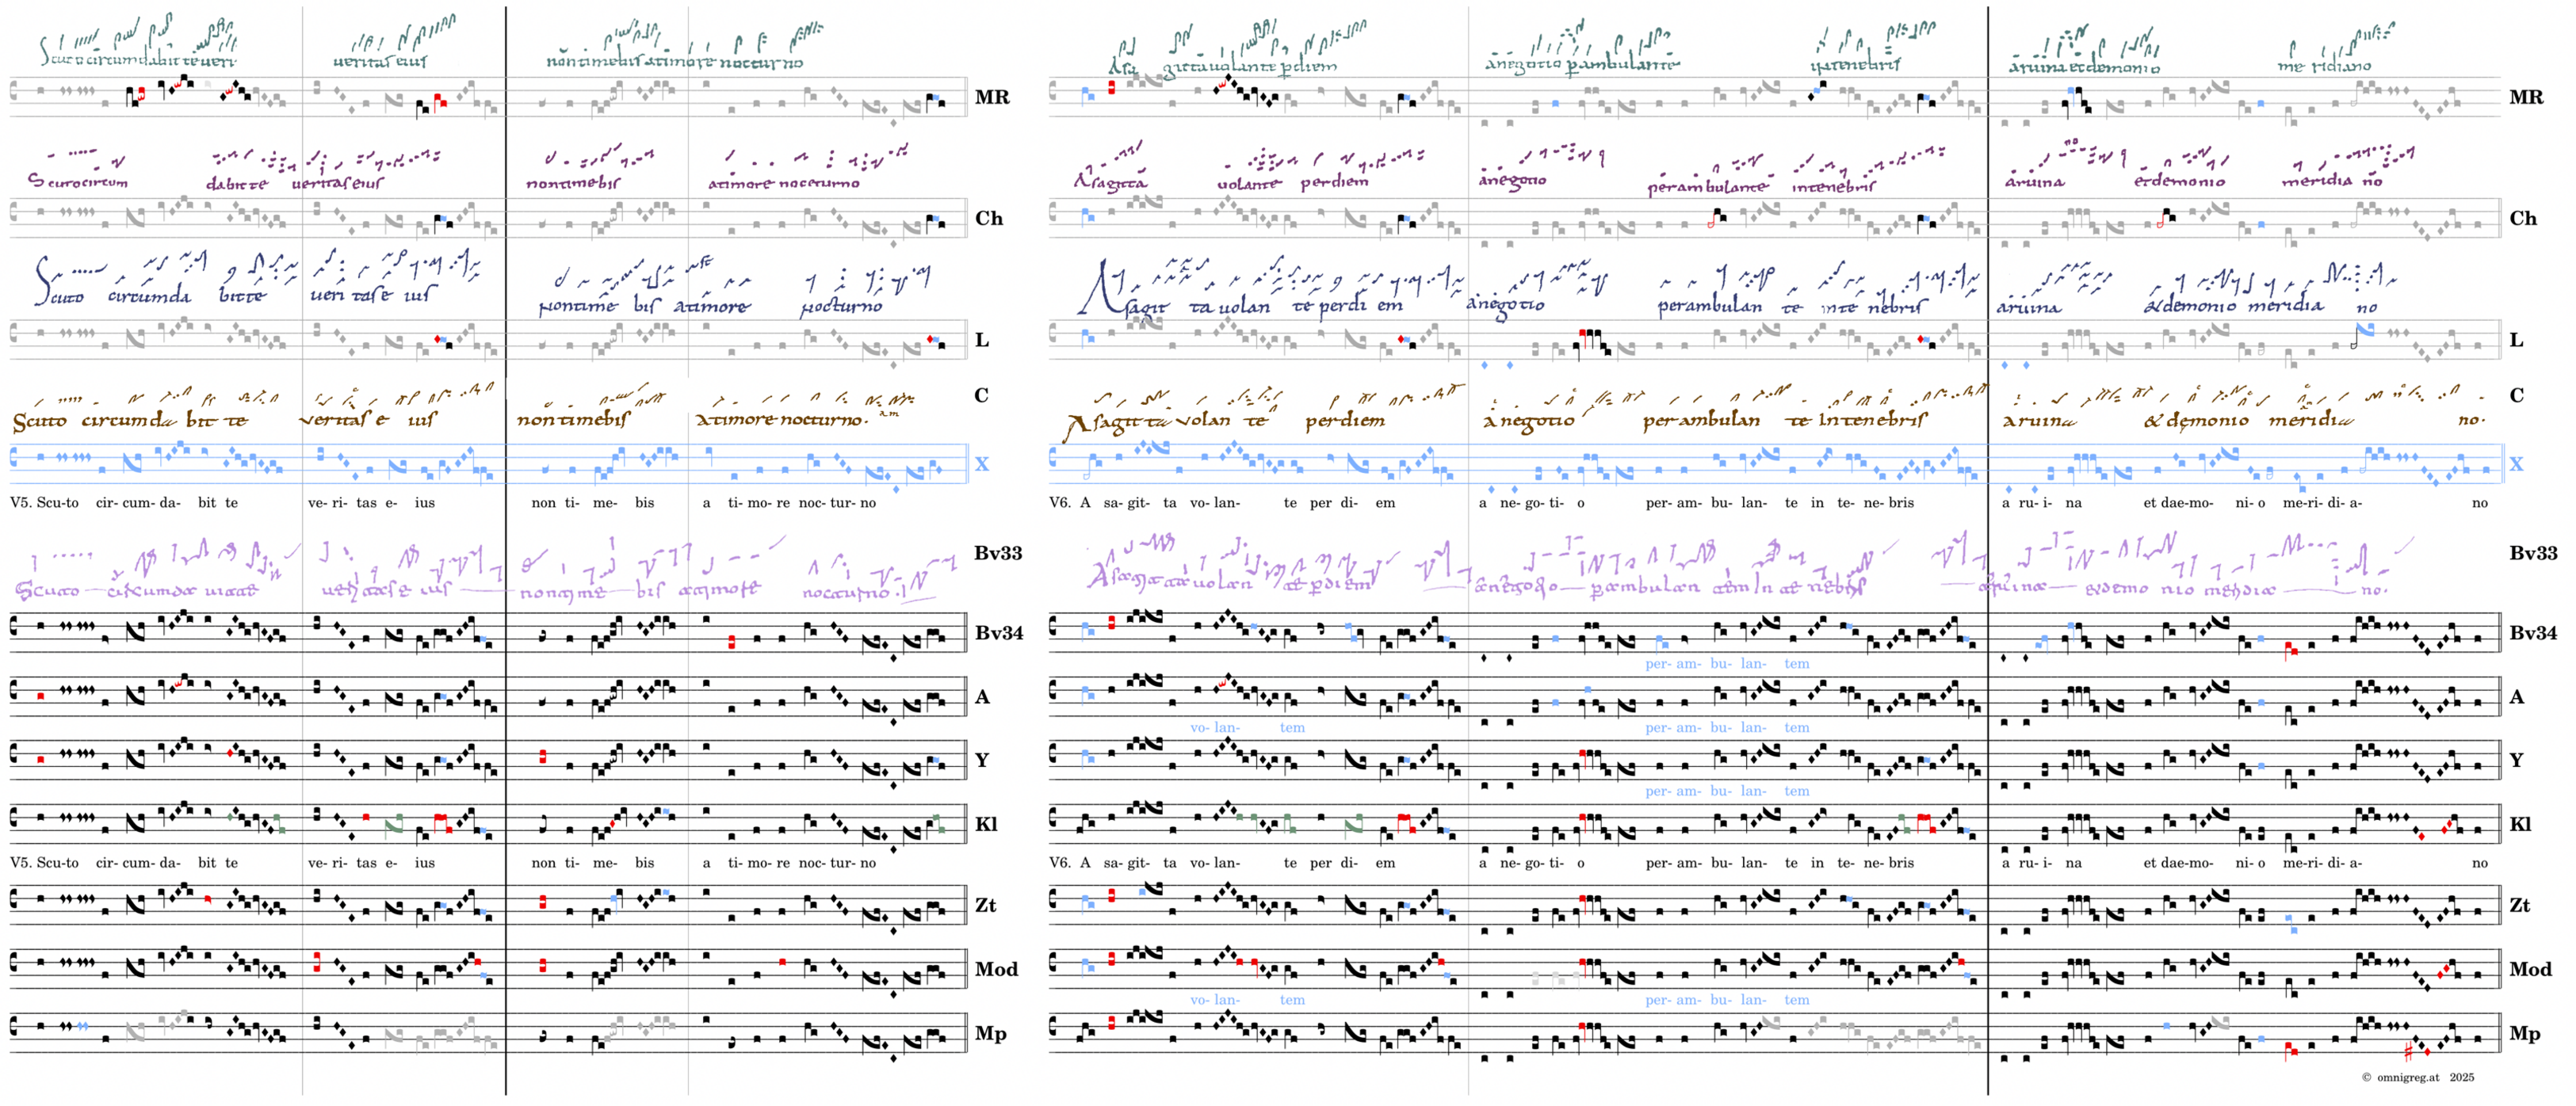 Scuto circumdabit te veri veritas eius non timebis a timore nocturno A sagitta volante perdiem a negotio perambulante in tenebris a ruina et demonio meridiano
MR
MR
Scuto circum dabit te veritas eius non timebis a timore nocturno A sagitta volante per diem a negotio perambulante in tenebris a ruina et demonio meridia no
Ch
Ch
Scuto circumda bit te veri tas e ius non time bis a timore nocturno A sagit ta volan te per di em a negotio perambulan te in te nebris a ruina & demonio meridia no
L
L
C
C
Scuto circumda bit te veritas e ius non timebis A timore nocturno. A sagit ta volan te per diem a negotio per ambulan te In tenebris a ruina & demonio meridia no.
X
X
V5. Scu-to cir- cum- da- bit te ve- ri- tas e- ius non ti- me- bis a ti- mo- re noc- tur- no V6. A sa- git- ta vo- lan- te per di- em a ne- go- ti- o per- am- bu- lan- te in te- ne- bris a ru- i- na et dae-mo- ni- o me-ri- di- a- no
Bv33
Bv33
Bv34
Bv34
per- am- bu- lan- tem
A
A
vo- lan- tem per- am- bu- lan- tem
Y
Y
per- am- bu- lan- tem
Kl
Kl
V5. Scu-to cir- cum- da- bit te ve- ri- tas e- ius non ti- me- bis a ti- mo- re noc- tur- no V6. A sa- git- ta vo- lan- te per di- em a ne- go- ti- o per- am- bu- lan- te in te- ne- bris a ru- i- na et dae-mo- ni- o me-ri- di- a- no
Zt
Zt
Mod
Mod
vo- lan- tem per- am- bu- lan- tem
Mp
Mp
© omnigreg.at 2025